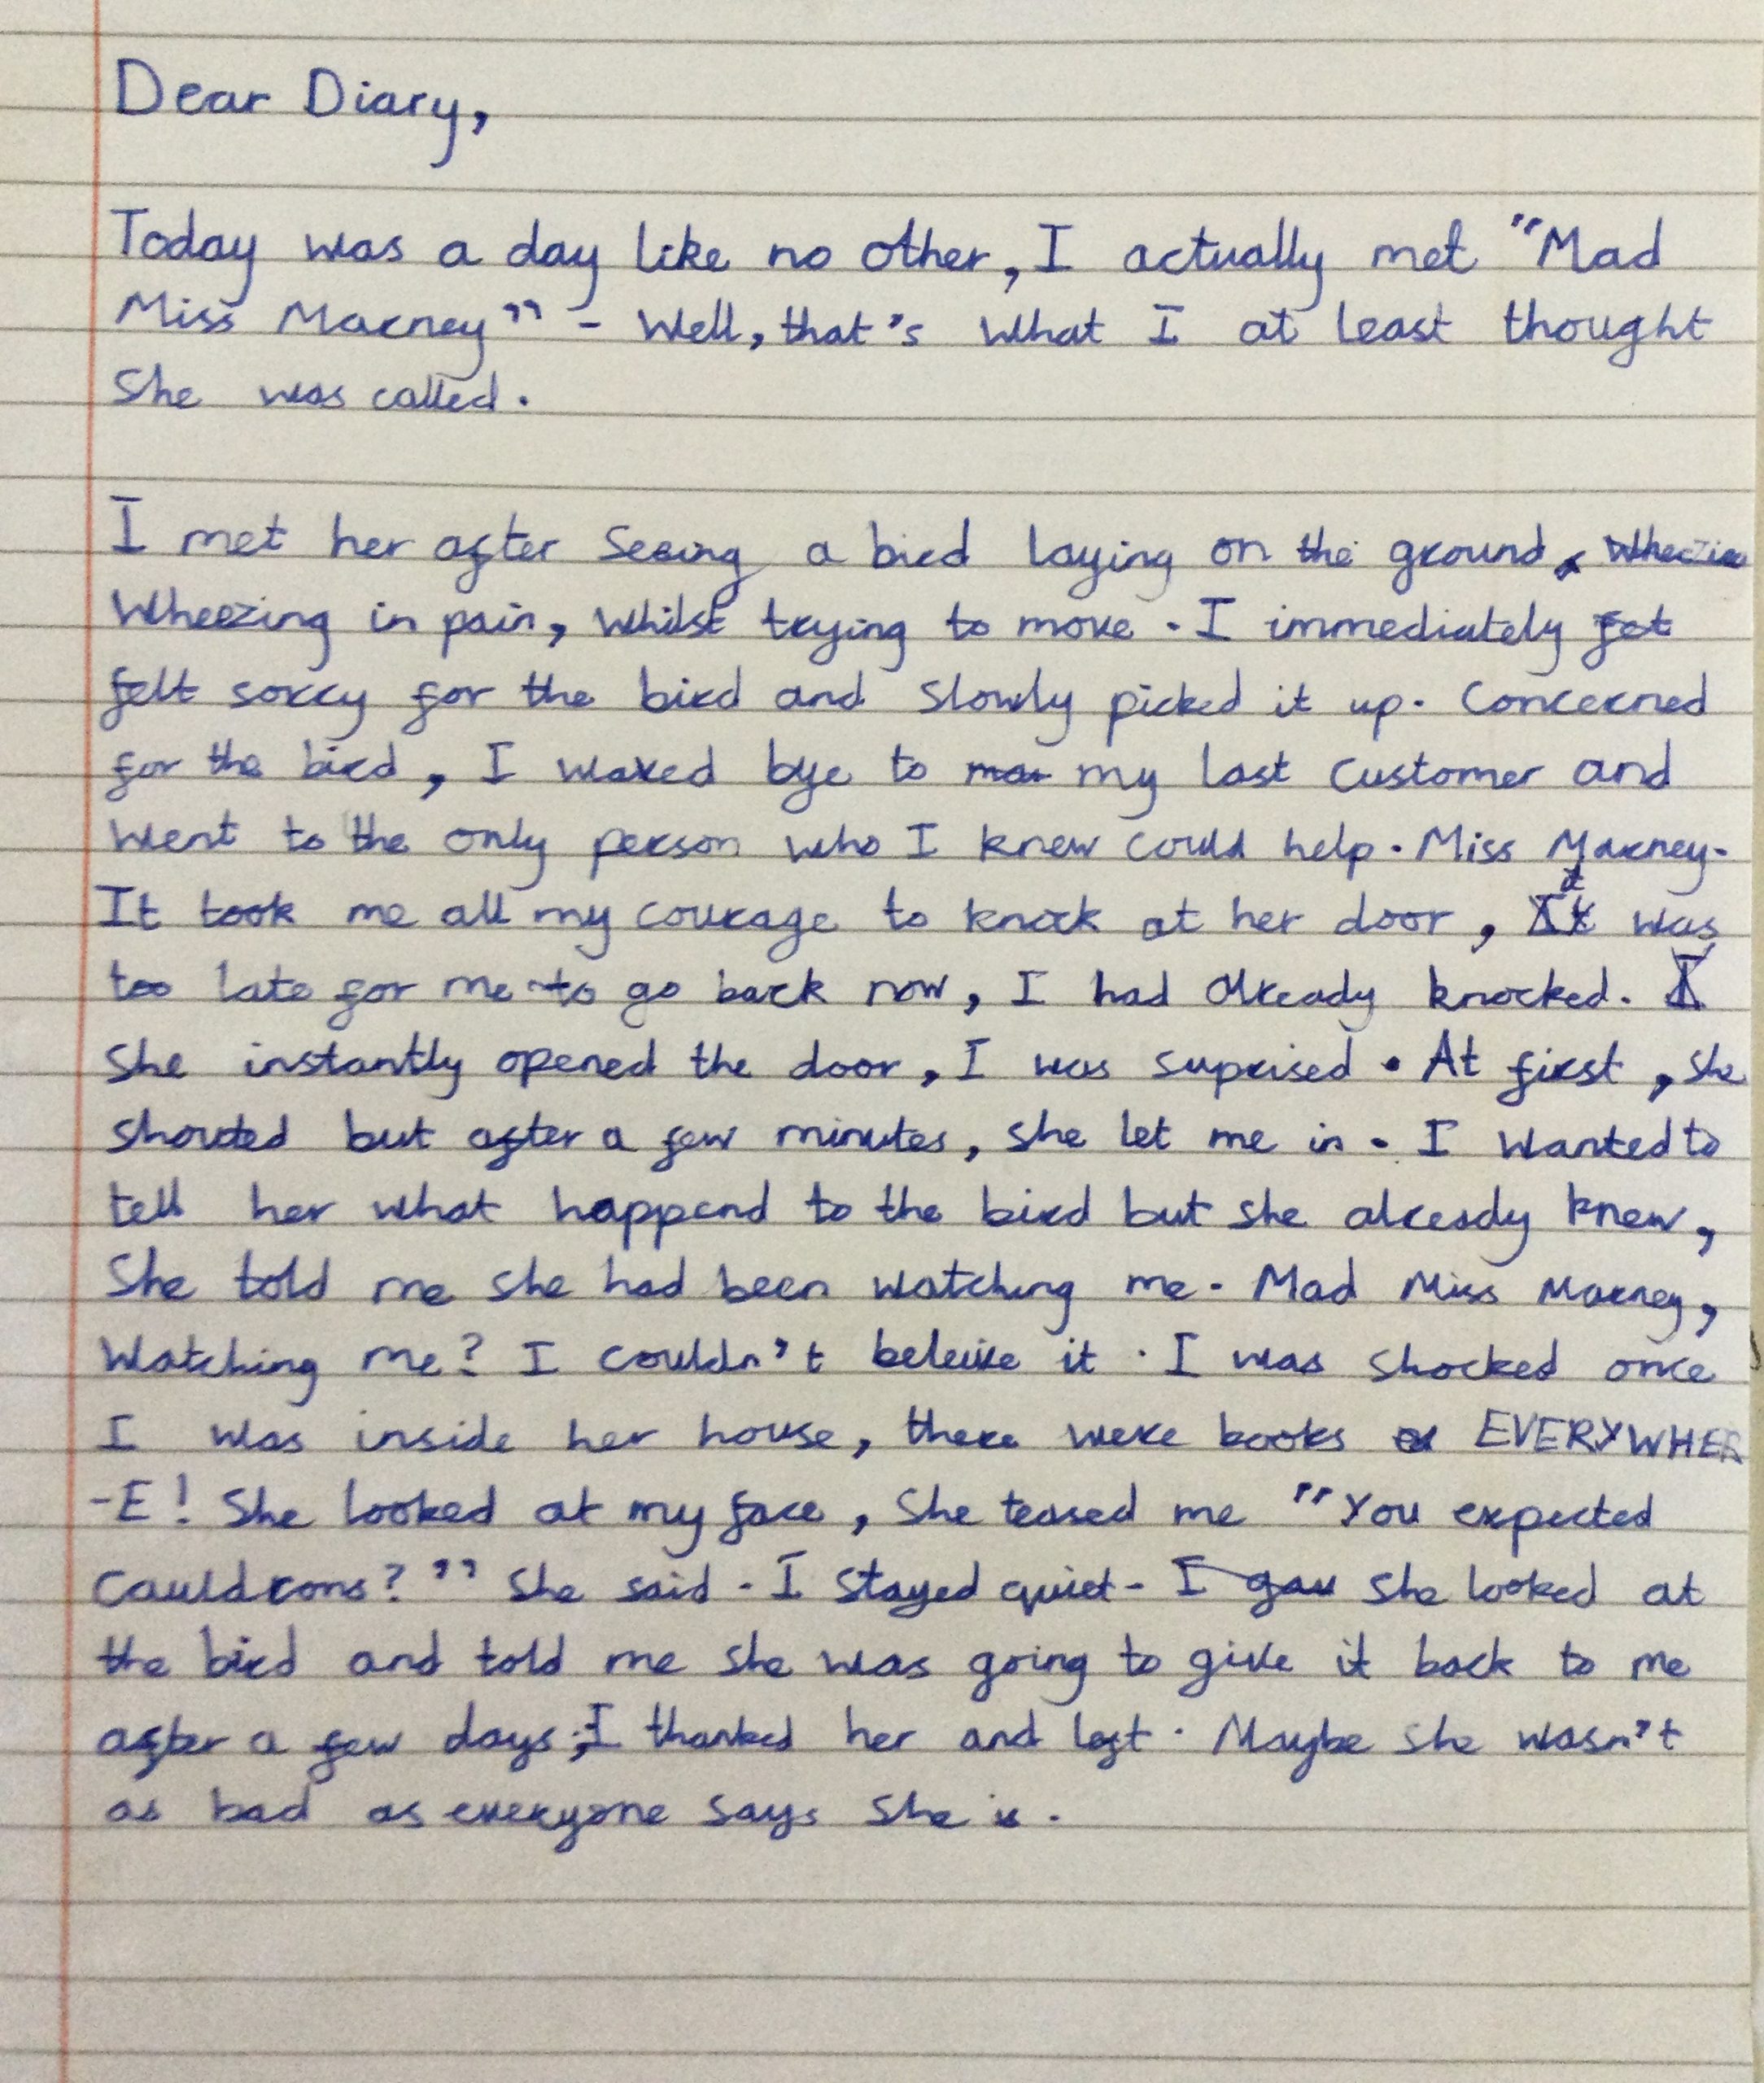 Dear Diary,
Today was a day like no other, I actually met "Mad
Miss Marney" - Well, that's what I at least thought
she was called.
I met her after seeing a bird laying on the ground,
wheezing in pain, whilst trying to move. I immediately
felt sorry for the bird and slowly picked it up. Concerned
for the bird, I waved bye to my last customer and
went to the only person who I knew could help. Miss Marney.
It took me all my courage to knock at her door, it was
too late for me to go back now, I had already knocked.
She instantly opened the door, I was suprised. At first, she
shouted but after a few minutes, she let me in. I wanted to
tell her what happend to the bird but she already knew,
She told me she had been watching me. Mad Miss Marney,
Watching me? I couldn't beleive it. I was shocked once
I was inside her house, there were books EVERYWHER
-E! She looked at my face, She teased me "You expected
cauldrons?" She said. I stayed quiet. She looked at
the bird and told me she was going to give it back to me
after a few days; I thanked her and left. Maybe she wasn't
as bad as everyone says she is.